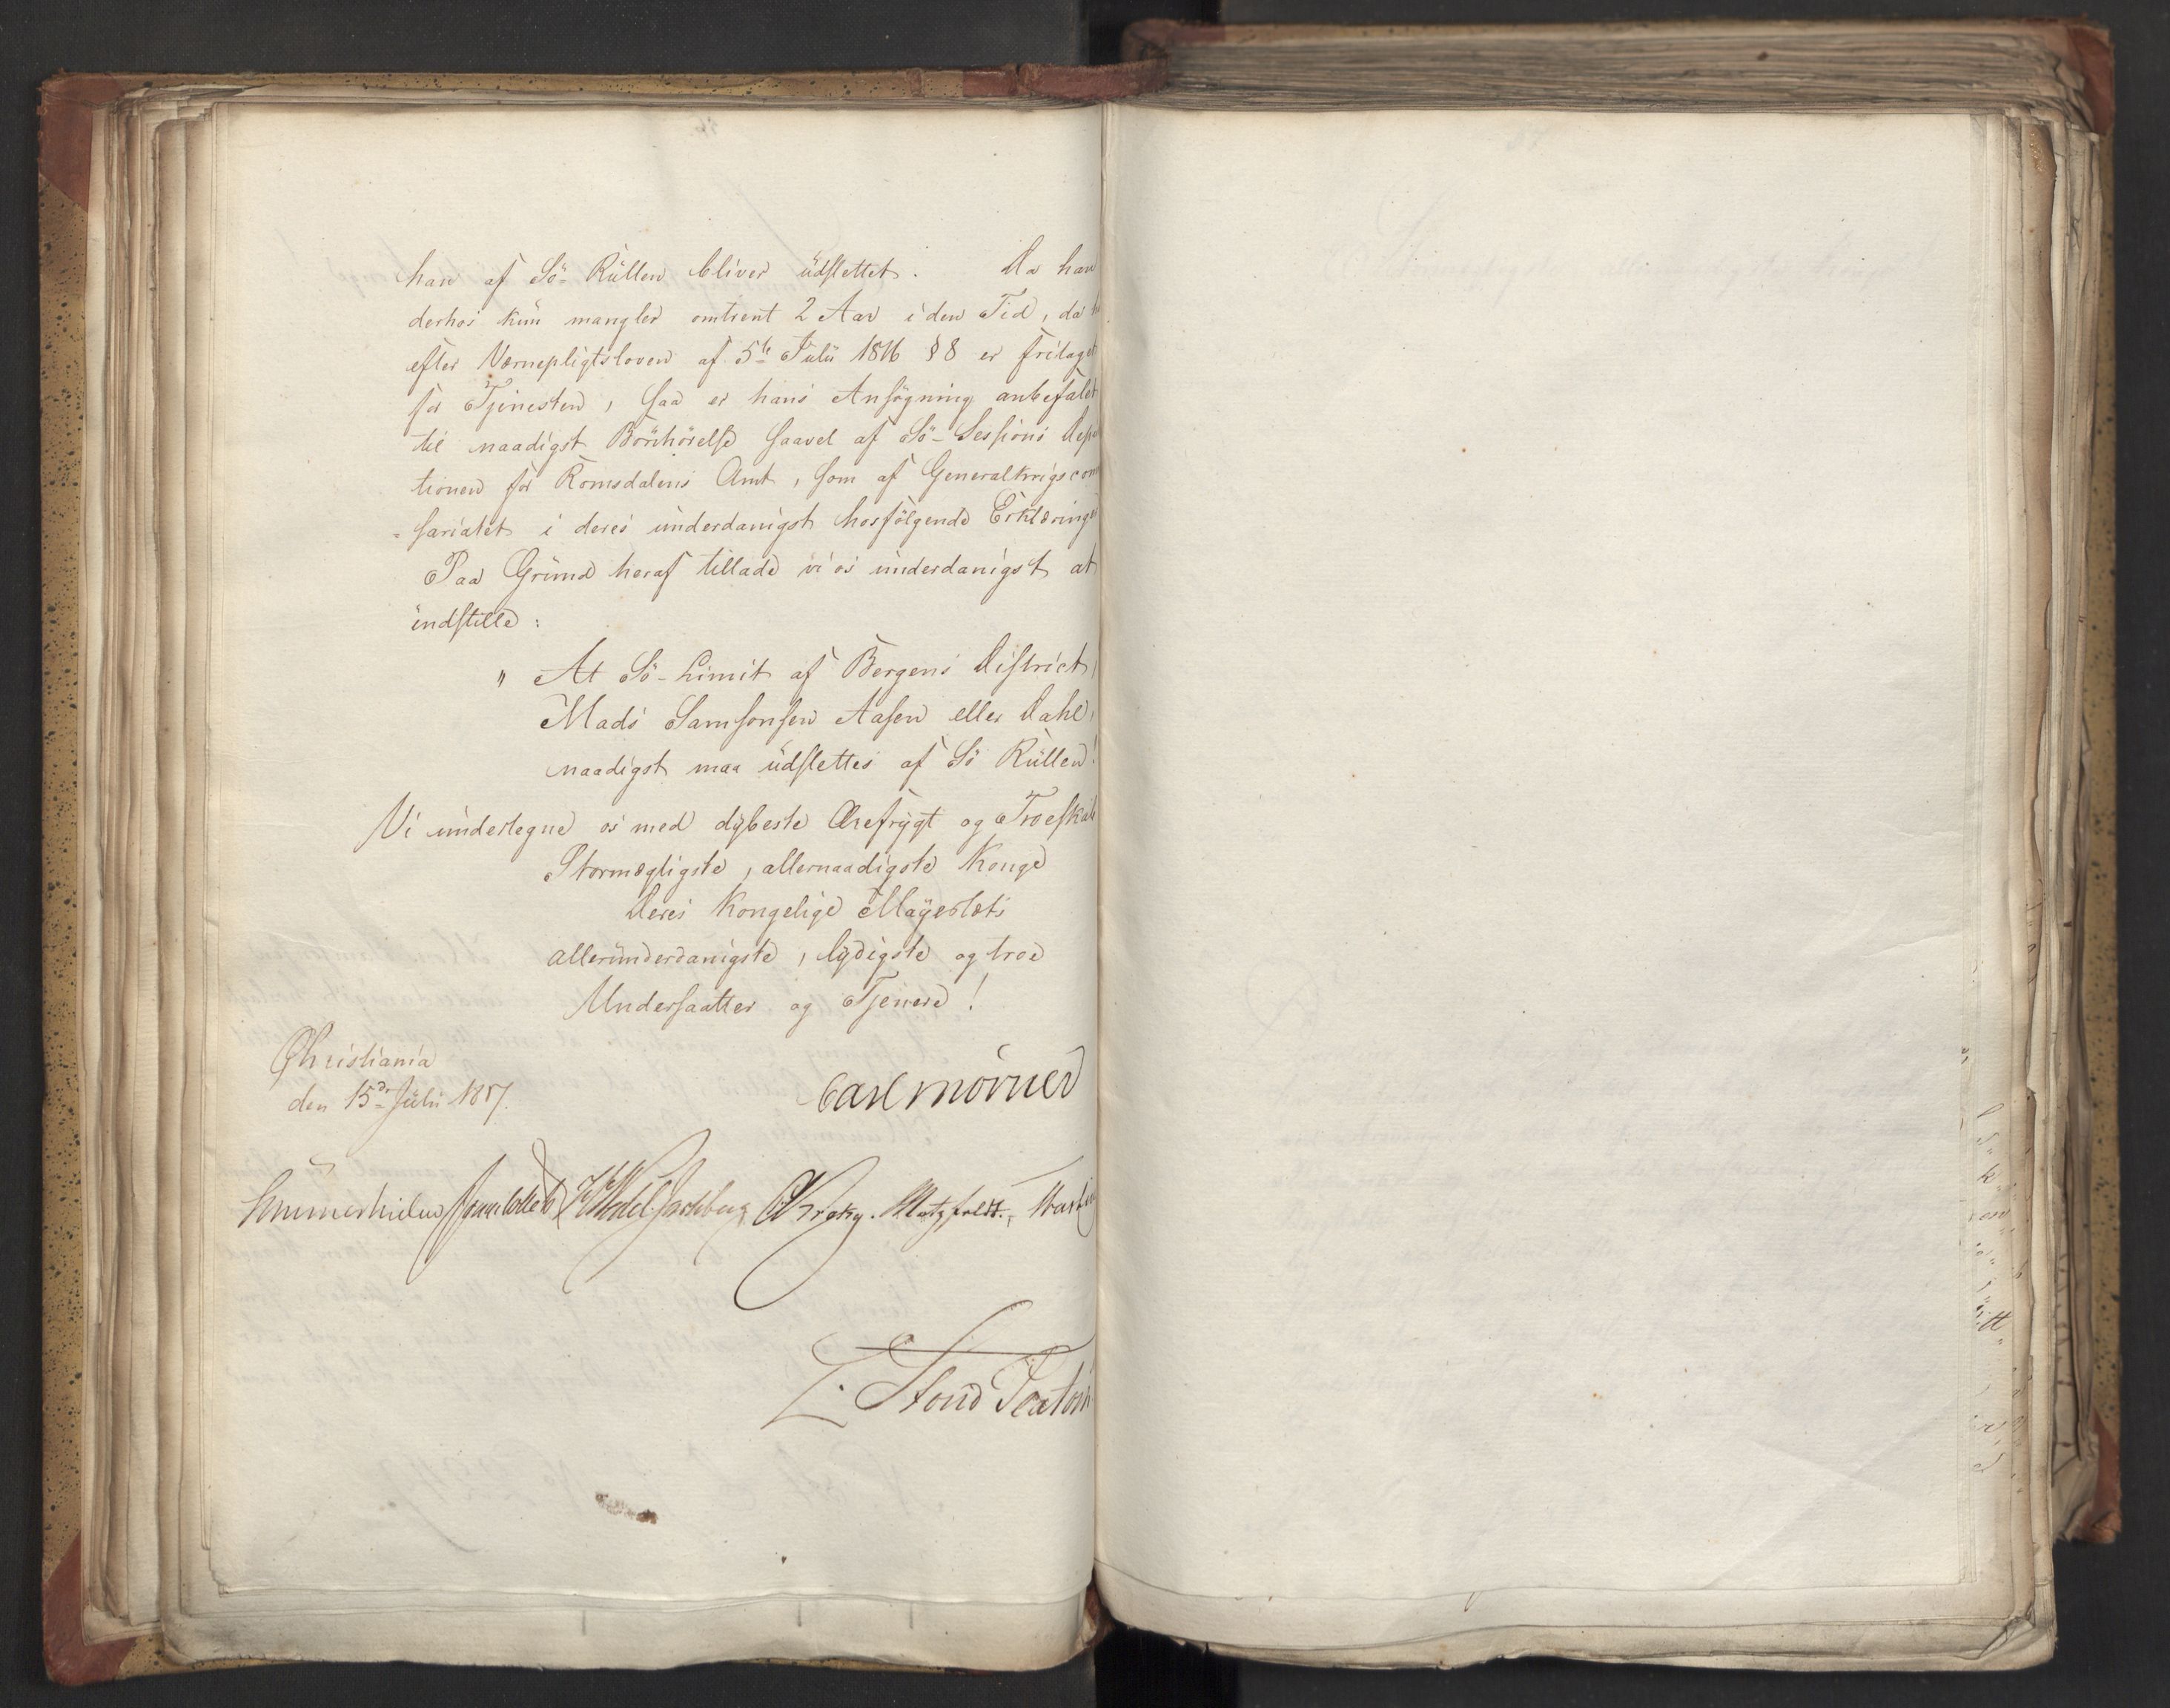 han af Sö-Rüllen bliver üdslettet. Da han
derhos kün mangler omtrent 2 Aar i den Tid, da
efter Værnepligtsloven af 5te Julii 1816 § 8 er fritaget
for Tjenesten, saa er hans Ansögning anbefalet
til naadigst Bönhörelse saavel af Sö-Sessions Depu
tionen for Romsdalens Amt, som af Generalkrigscom
=sariatet i deres ünderdanigst hosfölgende Erklæringer
Paa Gründ heraf tillade vi os ünderdanigst at
indstille:
" At Sö-Limit af Bergens District,
Mads Samsonsen Aasen eller Dahl,
naadigst maa üdslettes af Sö Rüllen!
Vi ündertegne os med dybeste Ærefrygt og Troeskab
Stormægtigste, allernaadigste Konge
Deres Kongelige Mayestæts
alleründerdanigste, lydigste og troe
Undersaatter og Tjenere!
Christiania
den 15de Julii 1817.
Carl Mörner
Sommerhielm Jonas Collett Krogh. Motzfeldt.